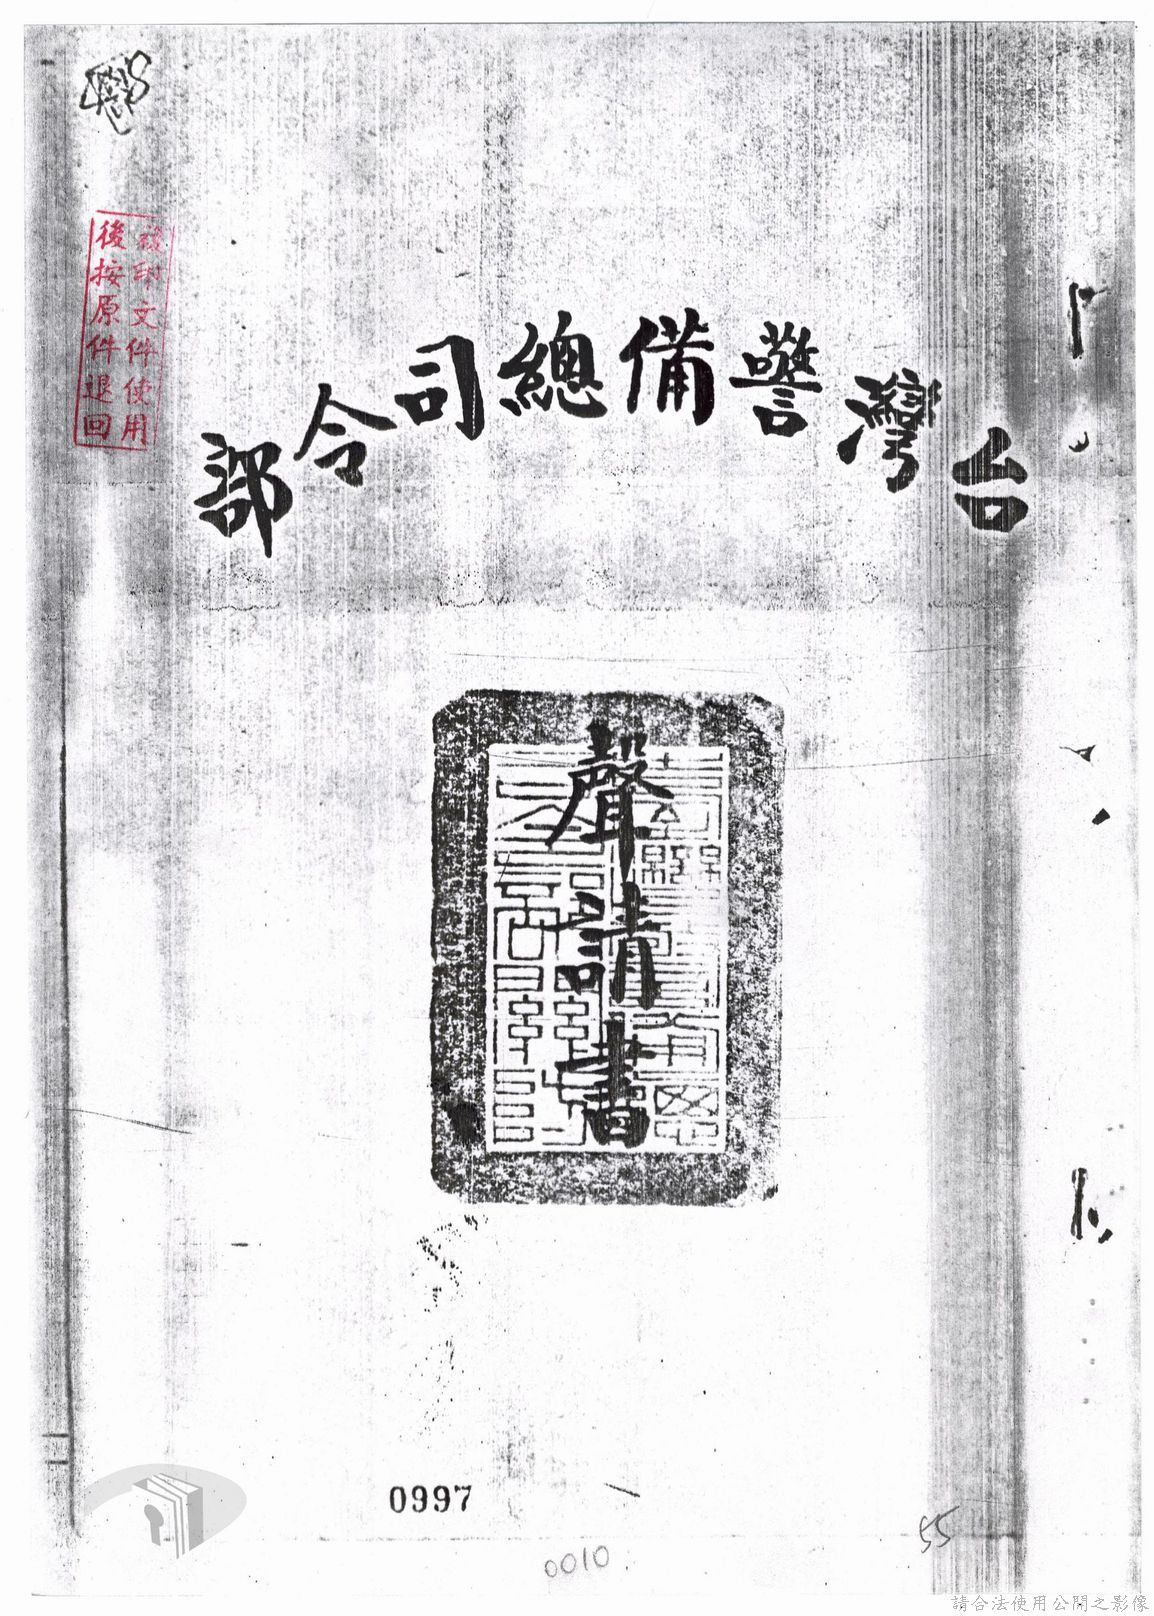 複印文件使用
後按原件退回
台灣警備總司令部
聲請書
0997
55
0010
請合法使用公開之影像